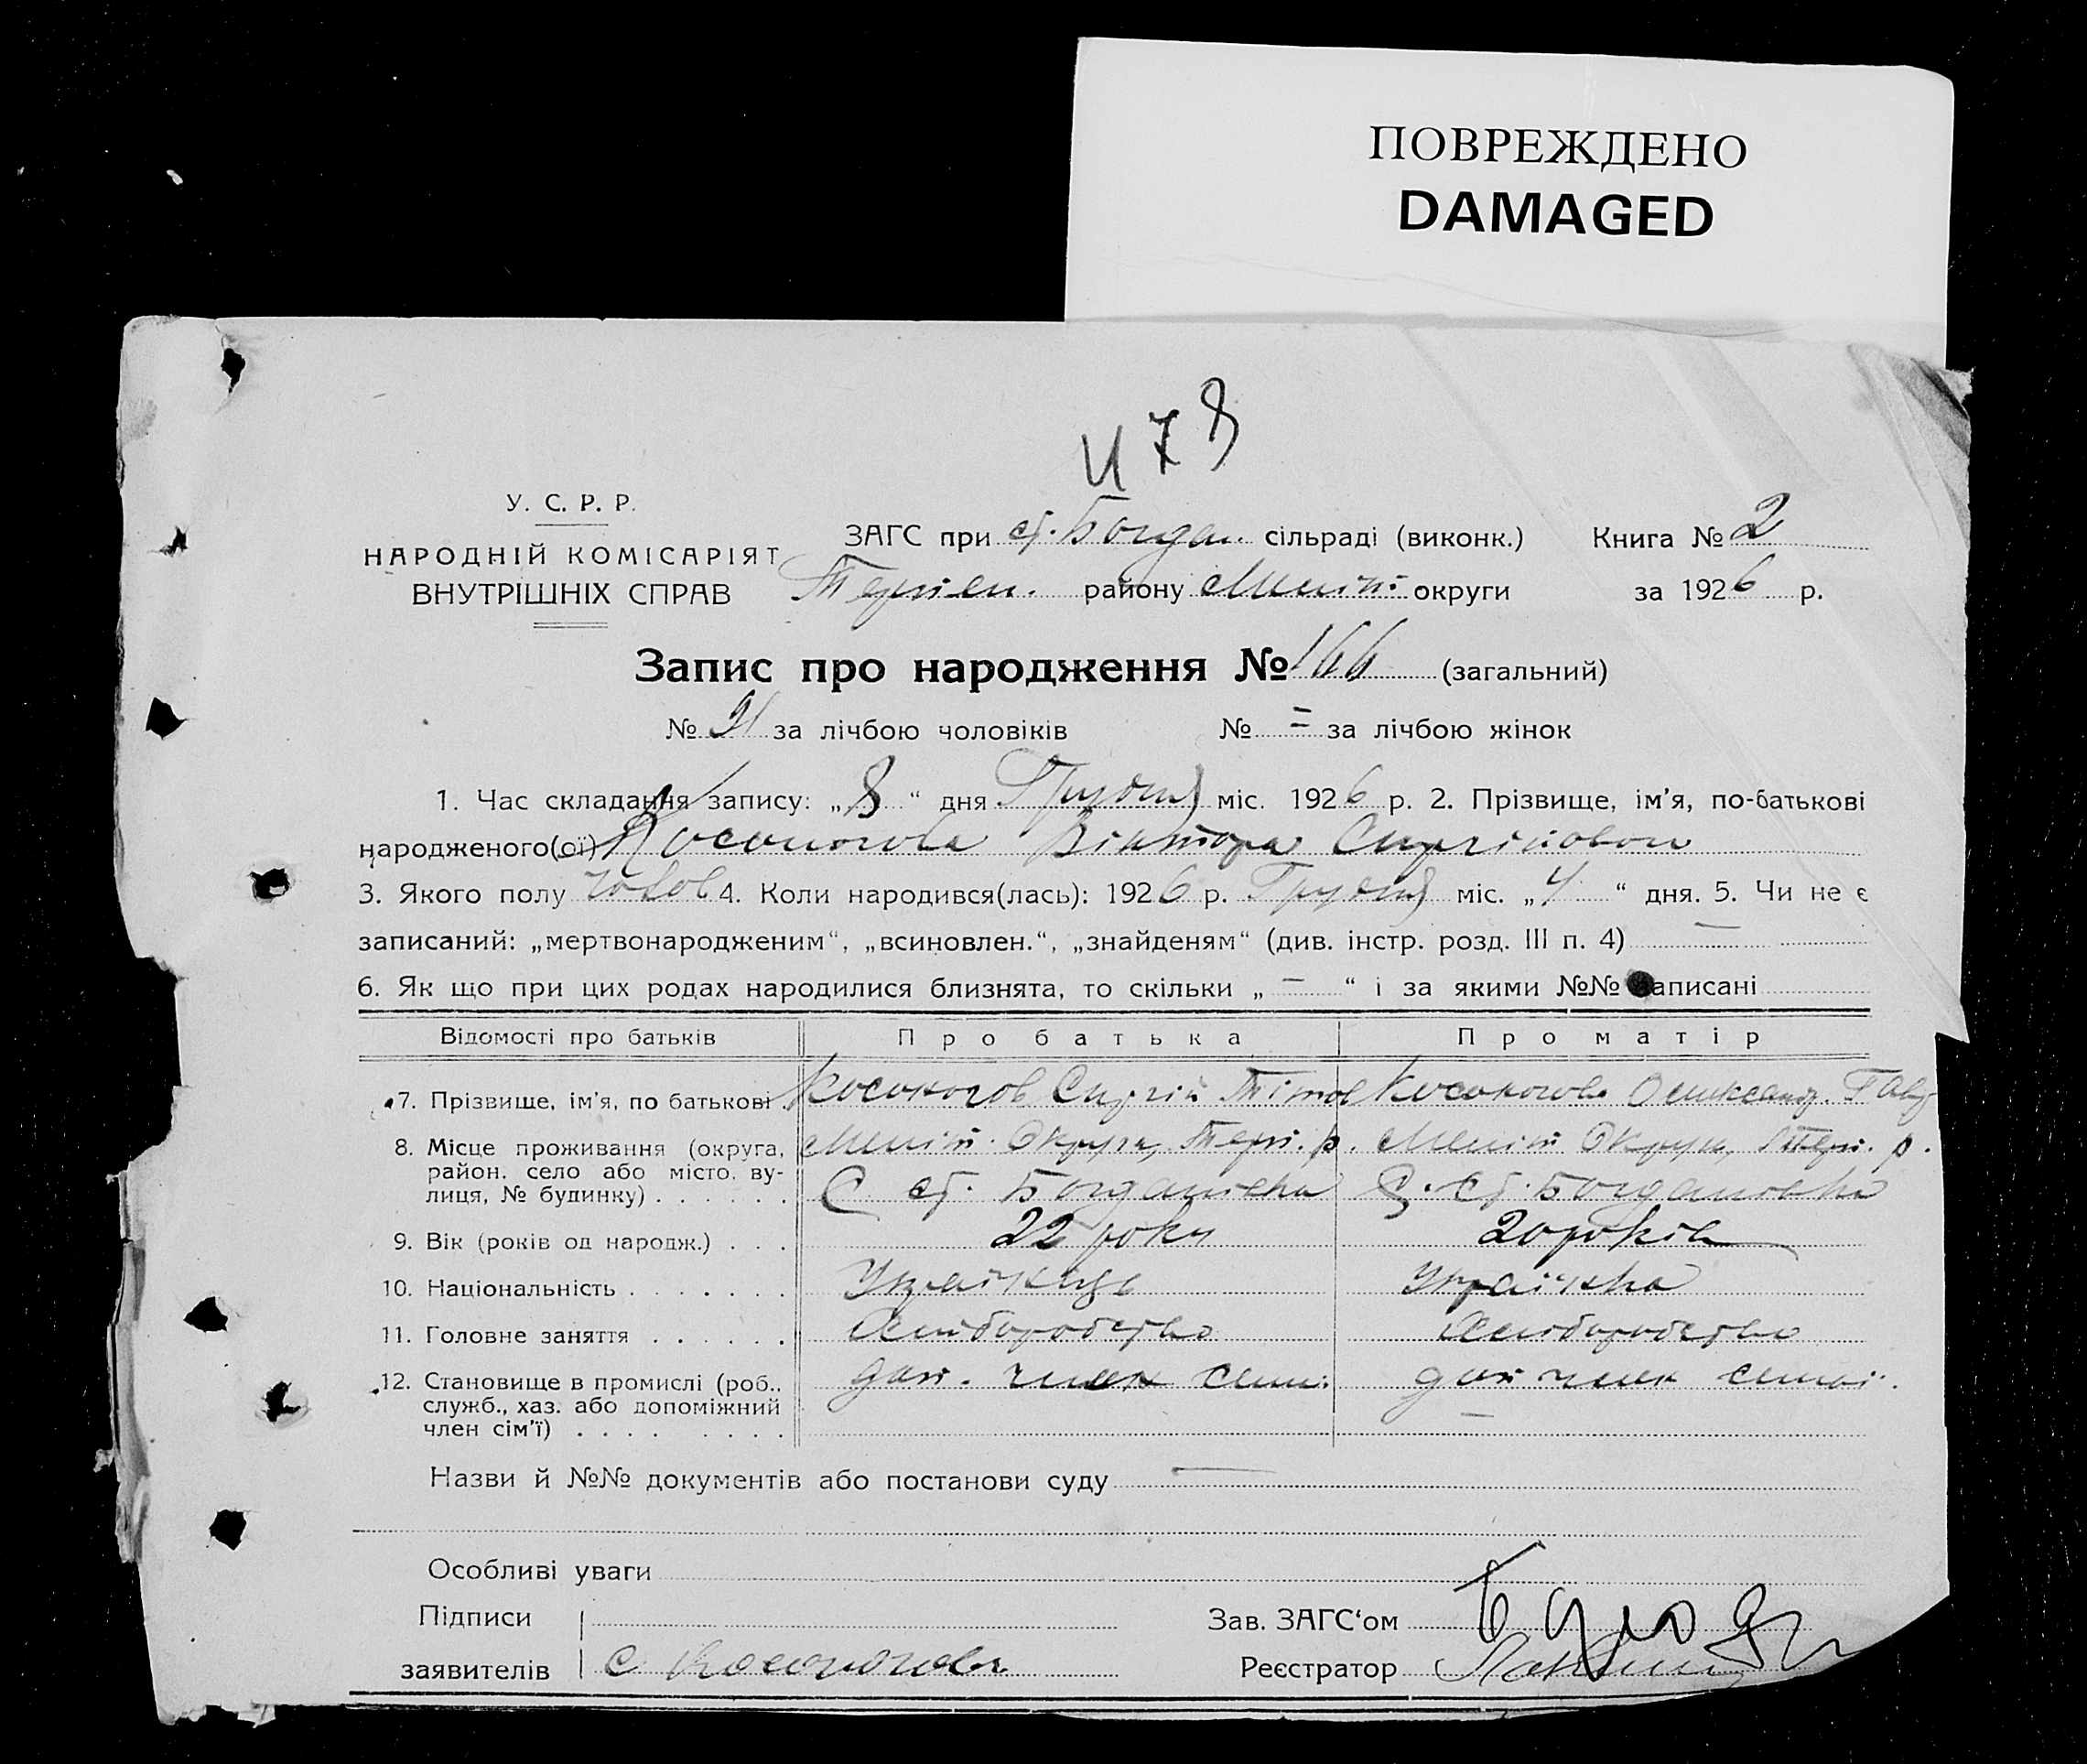 ПОВРЕЖДЕНО
DAMAGED
У. С. Р. Р.
НАРОДНІЙ КОМІСАРІЯТ
ВНУТРІШНІХ СПРАВ
ЗАГС при ст. Богдан. сільраді (виконк.) Книга № 2
Терпен. району Меліт. округи за 1926 р.
Запис про народження № 166 (загальний)
№ 91 за лічбою чоловіків № = за лічбою жінок
1. Час складання запису: „8“ дня Грудня міс. 1926 р. 2. Прізвище, ім'я, по-батькові
народженого(ої) Косоногова Віктора
3. Якого полу чолов 4. Коли народився(лась): 1926 р. Грудня міс. „4“ дня. 5. Чи не є
записаний: „мертвонародженим“, „всиновлен.“, „знайденям“ (див. інстр. розд. III п. 4) —
6. Як що при цих родах народилися близнята, то скільки „ — “ і за якими №№ записані
Відомості про батьків Про батька Про матір
7. Прізвище, ім'я, по батькові . Косоногов Сергій Тітов Косоногова Олександ. Гавр
8. Місце проживання (округа, район. село або місто, вулиця, № будинку) . . . . . . Меліт. Округи, Терп. р. Меліт Округи, Терп. р.
С ст. Богданівка С. ст. Богданівка
9. Вік (років од народж.) . . . 22 роки 20 років
10. Національність . . . . . . . Українць Українка
11. Головне заняття . . . . . . Хліборобство Хліборобство
12. Становище в промислі (роб., служб., хаз. або допоміжний член сім'ї) . . . . . . . . доп. член сем. доп член семьї.
Назви й №№ документів або постанови суду —
Особливі уваги
Підписи
заявителів С Косоногов
Зав. ЗАГС'ом
Реєстратор